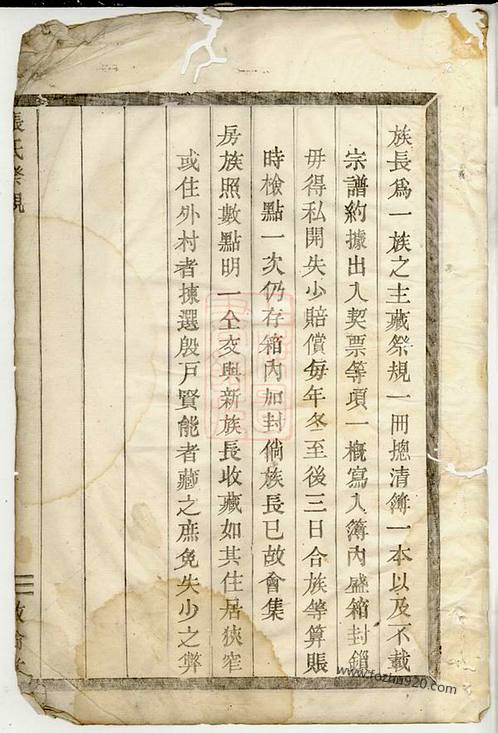 族長爲一族之主藏祭規一冊摠清簿一本以及不載
宗譜約據出入契票等項一概寫入簿內盛箱封鎖
毋得私開失少賠償每年冬至後三日合族等算賬
時檢點一次仍存箱內加封倘族長已故會集
房族照數點明一仝交與新族長收藏如其住居狹窄
或住外村者揀選殷戶賢能者藏之庶免失少之弊
張氏祭規
www.fozhu920.com